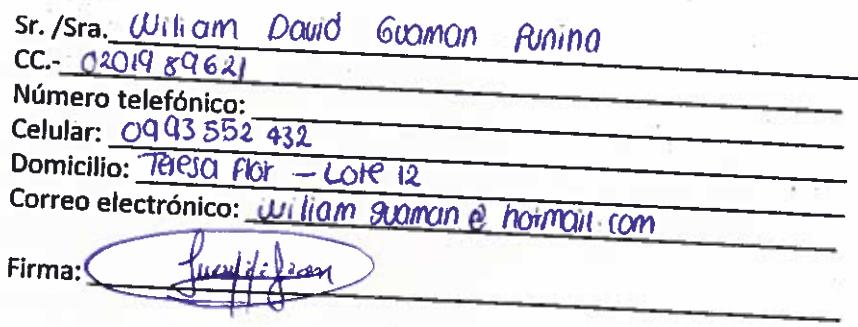 Sr. /Sra. Wiliam David Guaman Punina
CC.- 0201989621
Número telefónico:
Celular: 0993552432
Domicilio: Teresa Flor - Lote 12
Correo electrónico: wiliam guaman@hotmail.com
Firma: